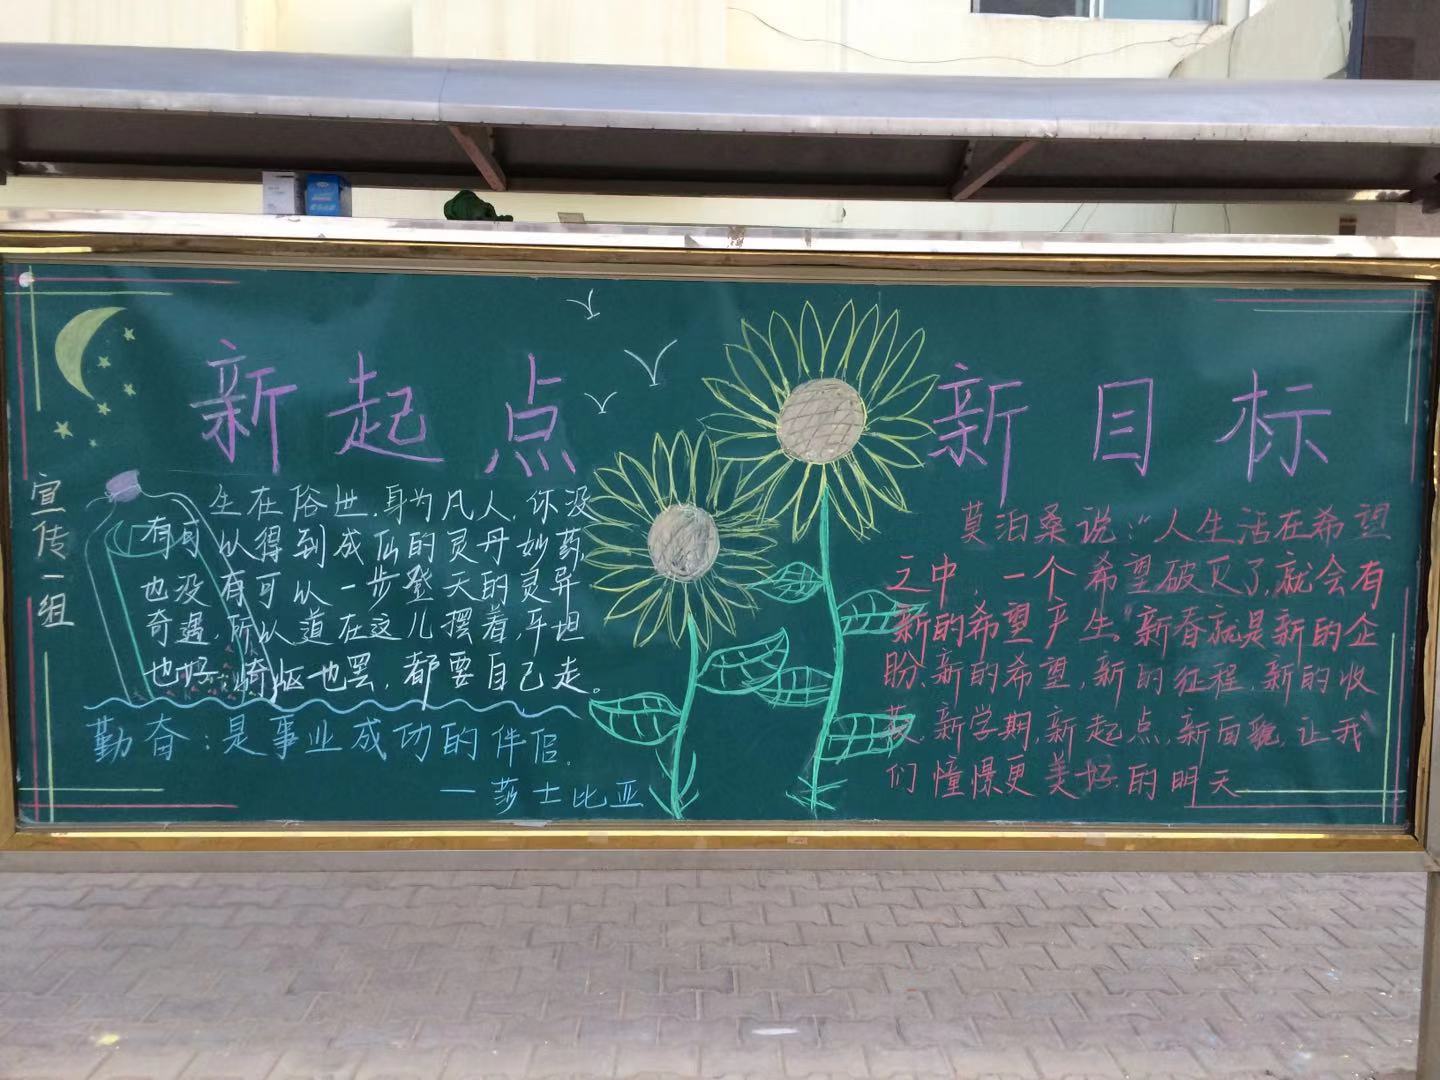 新起点
新目标
宣传一组
生在俗世,身为凡人,你没
有可以得到成仙的灵丹妙药,
也没有可以一步登天的灵异
奇遇,所以道在这儿摆着,平坦
也好,崎岖也罢,都要自己走。
勤奋:是事业成功的伴侣.
—莎士比亚
莫泊桑说:"人生活在希望
之中,一个希望破灭了,就会有
新的希望产生。"新春就是新的企
盼、新的希望,新的征程,新的收
获,新学期,新起点,新面貌,让我
们憧憬更美好的明天